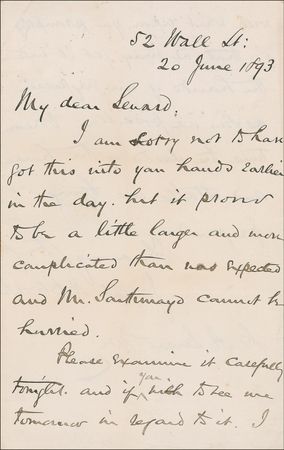 52 Wall St:
20 June 1893
My dear Seward;
I am sorry not to have
got this into your hands earlier
in the day. but it proved
to be a little larger and more
complicated than was expected
and Mr. Southmayd cannot be
hurried.
Please examine it carefully
tonight. and if you wish to see me
tomorrow in regard to it. I